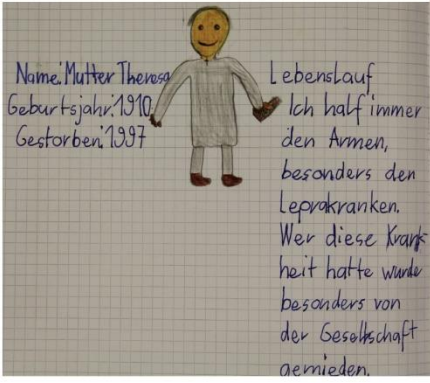 Name: Mutter Theresa
Geburtsjahr: 1910
Gestorben: 1997
Lebenslauf
Ich half immer
den Armen,
besonders den
Leprakranken.
Wer diese Krank-
heit hatte wurde
besonders von
der Gesellschaft
gemieden.